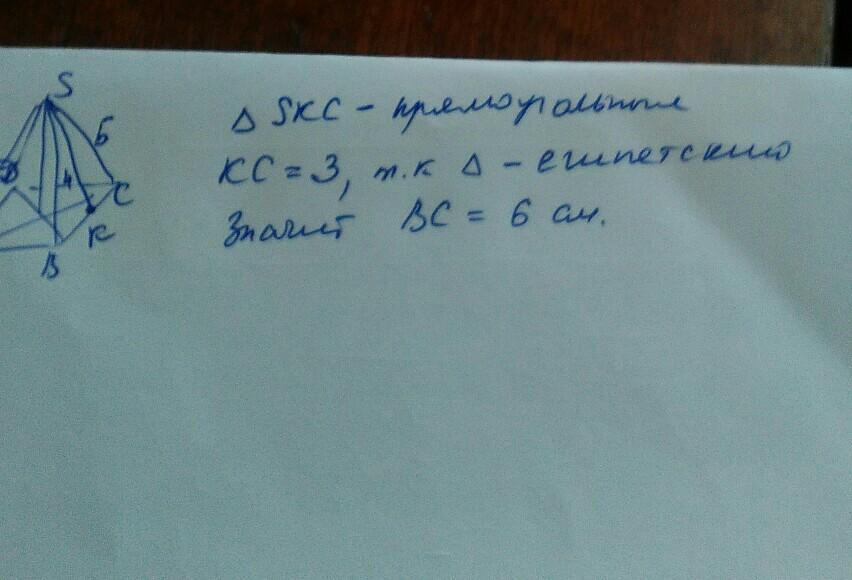 S
Δ SKC - прямоугольный
5
KC = 3, т.к Δ - египетский
4
C
K
Значит BC = 6 см.
B